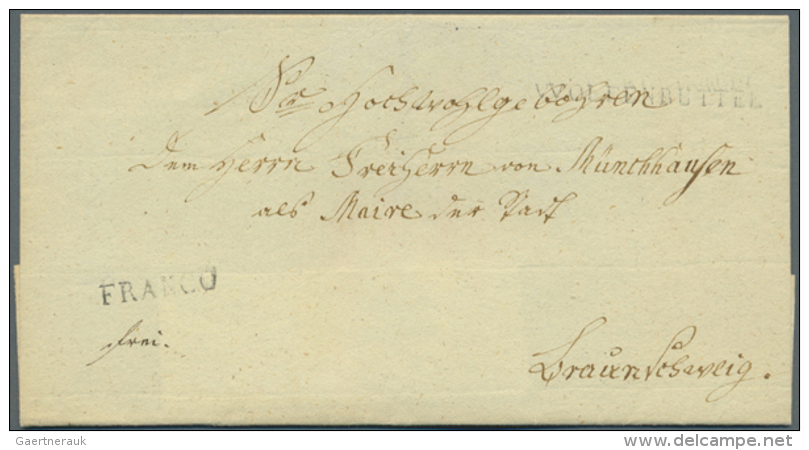 Sr Hochwohlgebohren
WOLFENBÜTTEL
dem Herrn Freiherrn von Münchhausen
als Maire der Stadt
FRANCO
frei.
Braunschweig.
Gaertnerauk
www.delcampe.net